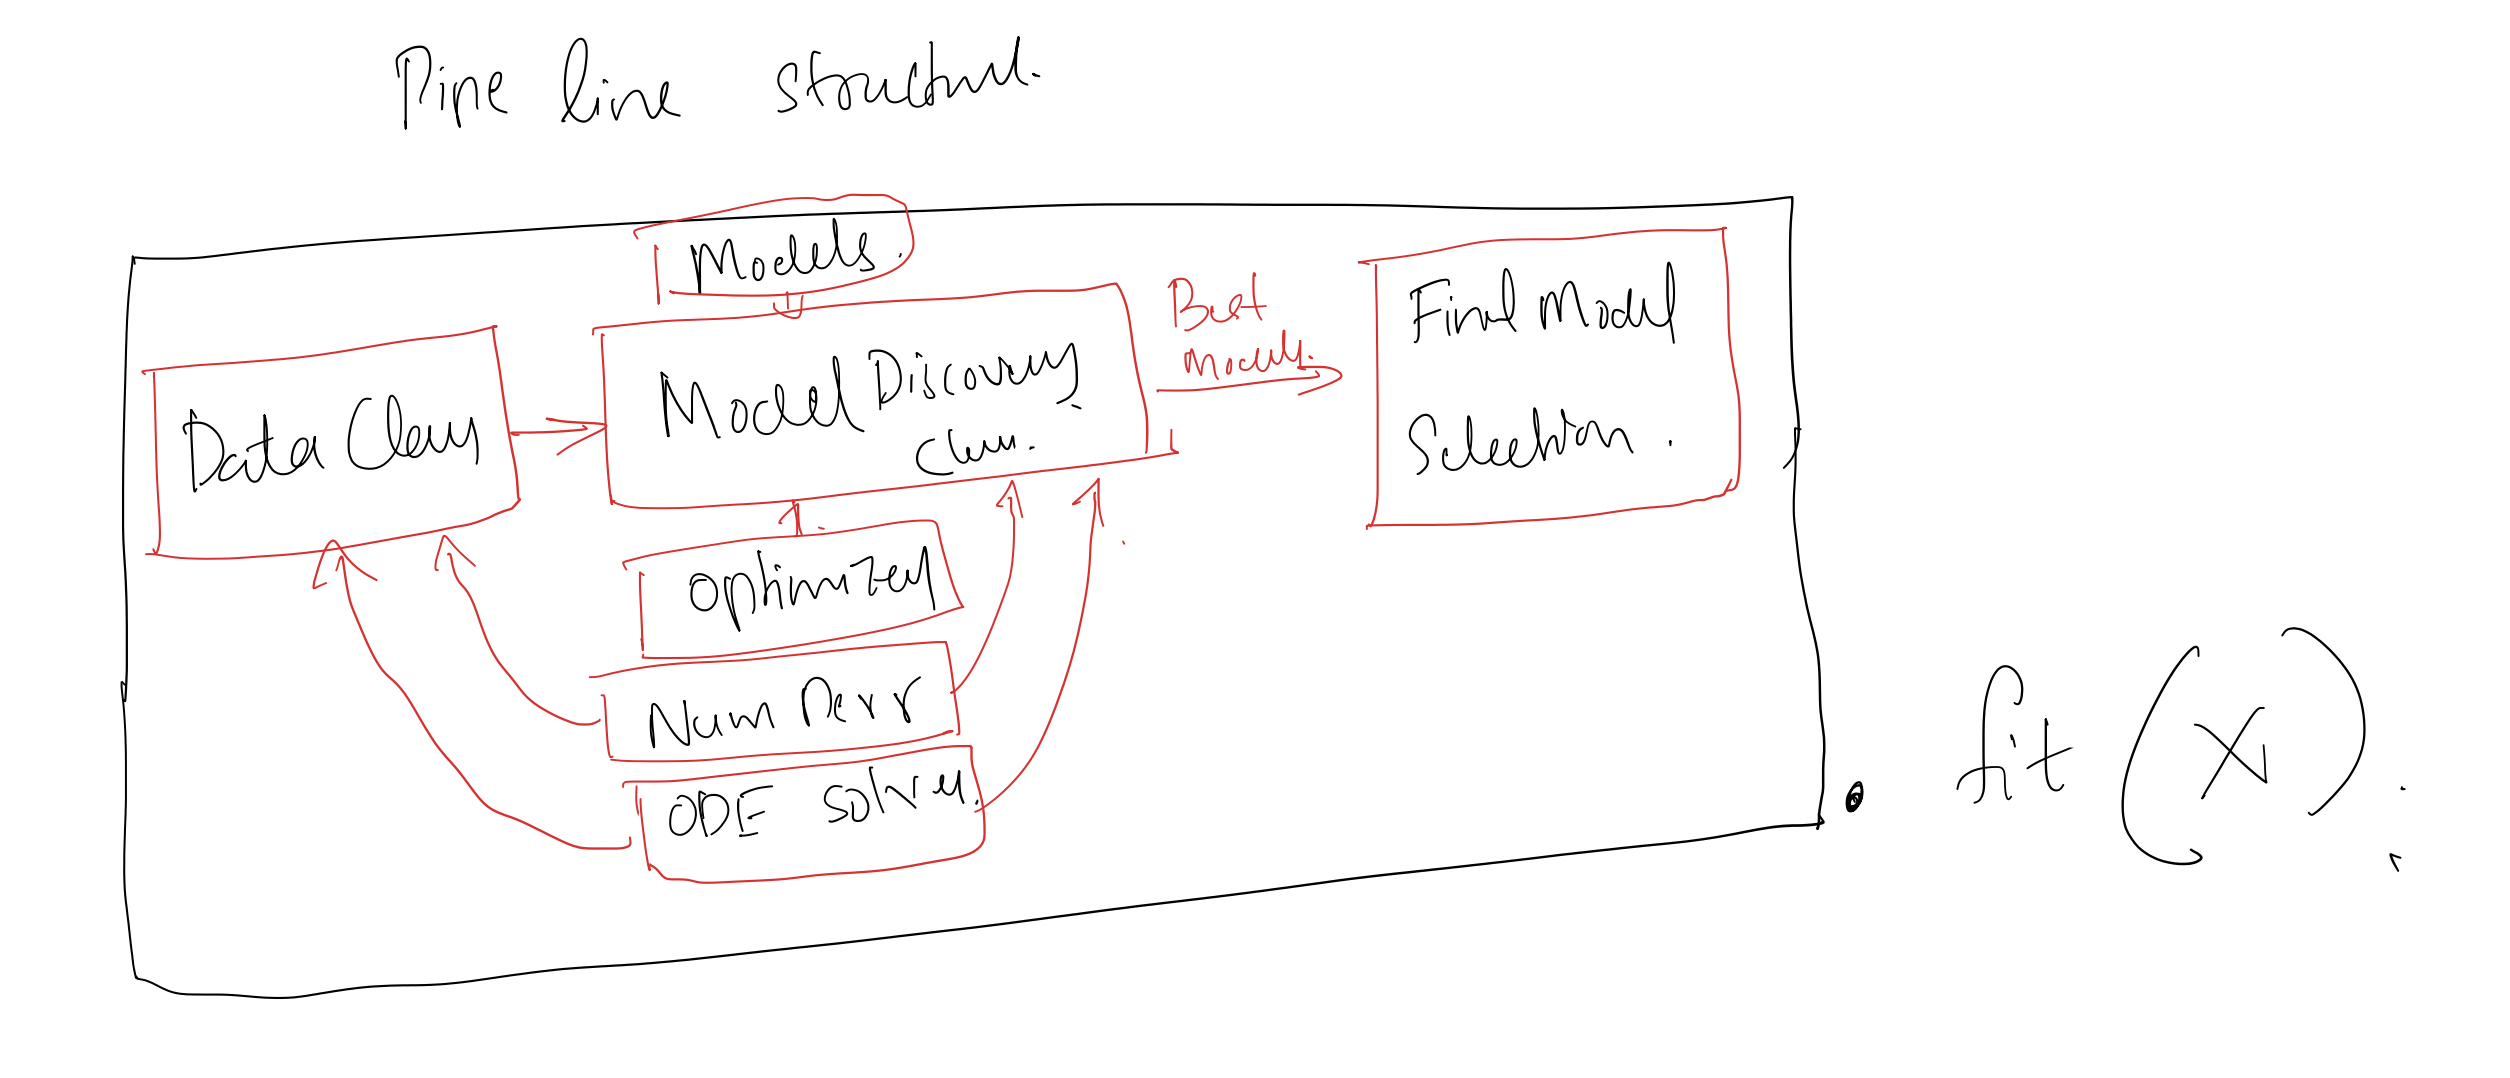 Pipe line structured.
Models.
Data Clean
Model Discovery
Cum.
Best
Model.
Final Model
Selection.
Optimizer
Num Prr
ODE solver.
.fit(x)